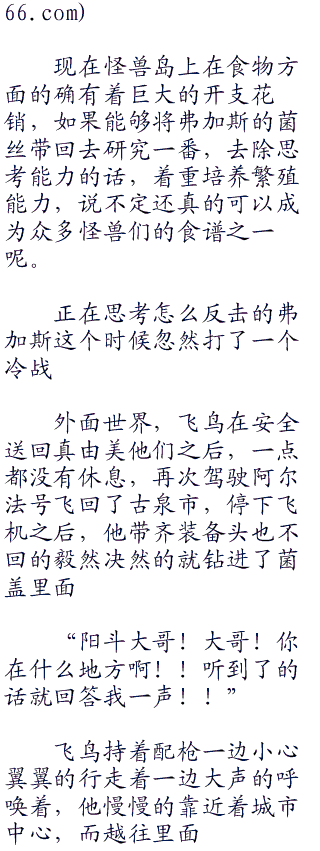 66.com)
现在怪兽岛上在食物方
面的确有着巨大的开支花
销，如果能够将弗加斯的菌
丝带回去研究一番，去除思
考能力的话，着重培养繁殖
能力，说不定还真的可以成
为众多怪兽们的食谱之一
呢。
正在思考怎么反击的弗
加斯这个时候忽然打了一个
冷战
外面世界，飞鸟在安全
送回真由美他们之后，一点
都没有休息，再次驾驶阿尔
法号飞回了古泉市，停下飞
机之后，他带齐装备头也不
回的毅然决然的就钻进了菌
盖里面
“阳斗大哥！大哥！你
在什么地方啊！！听到了的
话就回答我一声！！”
飞鸟持着配枪一边小心
翼翼的行走着一边大声的呼
唤着，他慢慢的靠近着城市
中心，而越往里面